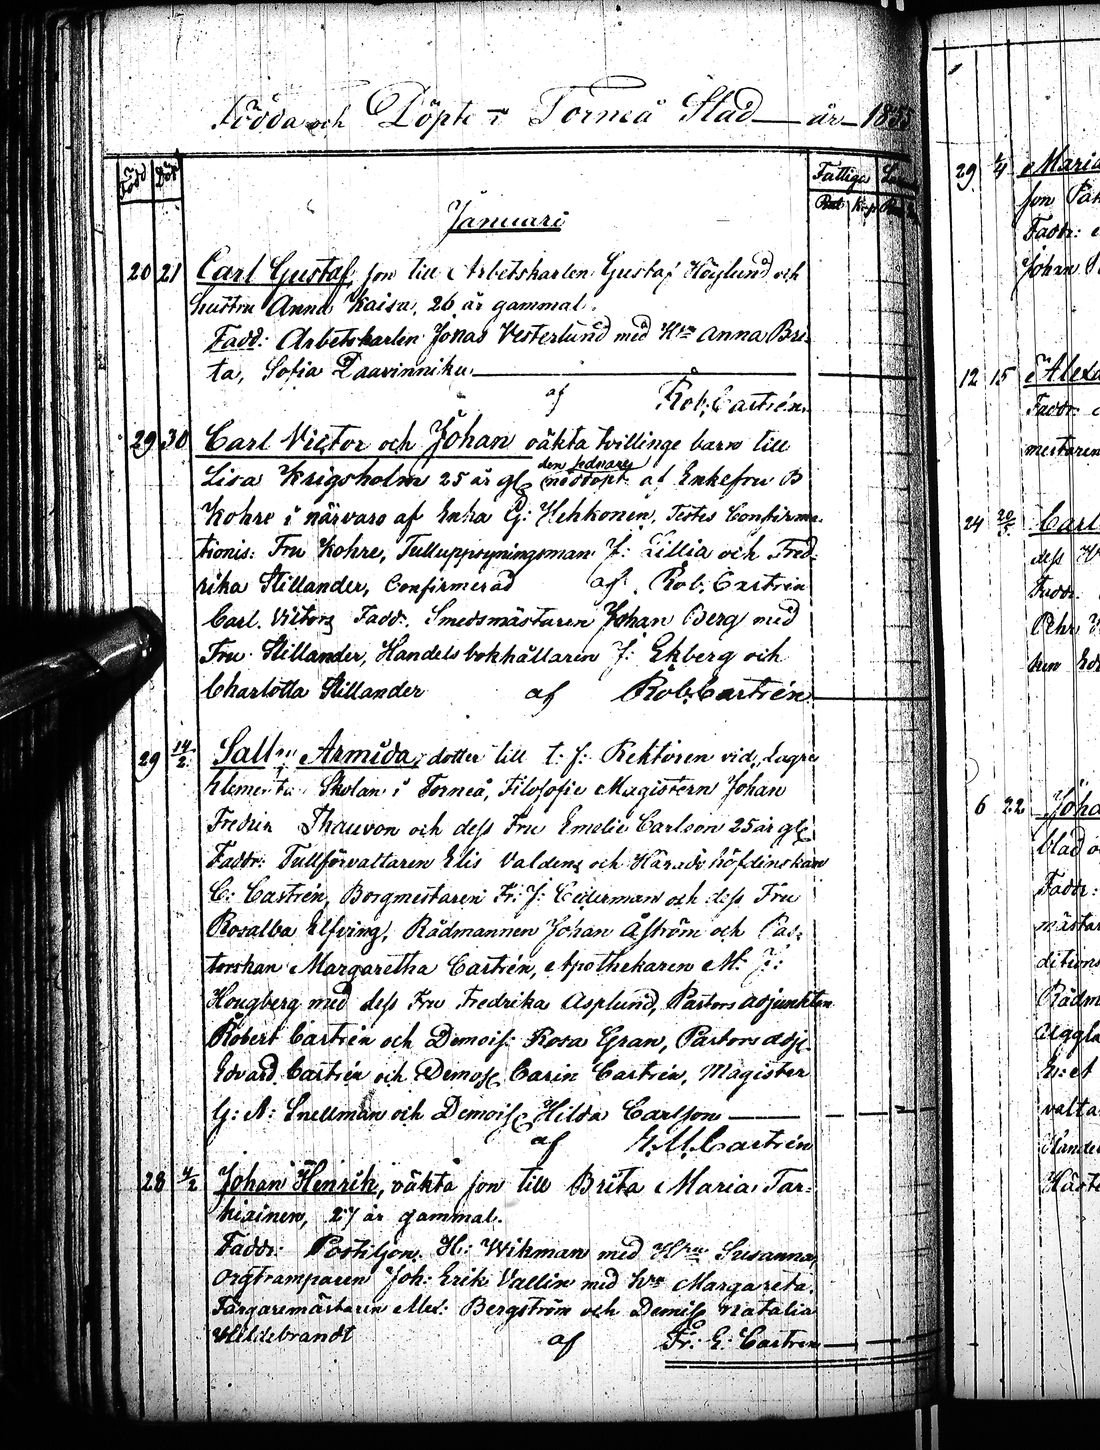 Födda och Döpte i Torneå Stad år 1855
Född Döpt
Fattige
Rub. Kop.
Januari
20 21 Carl Gustaf, son till Arbetskarlen Gustaf Höglund och
hustru Anna Kaisa, 26 år gammal.
Fadd: Arbetskarlen Jonas Vesterlund med Hru Anna Bri-
ta, Sofia Laavinniku
af Rob. Castrén
29 30 Carl Victor och Johan oäkta tvillinge barn till
den sednare
Lisa Krigsholm 25 år gl nöddöpt af Enkefru B
Kohre i närvaro af Enka G: Hehkonen, Testes Confirma-
tionis: Fru Kohre, Tulluppsyningsman J: Lillia och Fred-
rika Stillander, Confirmerad af Rob. Castrén
Carl Victors Fadd. Smedsmästaren Johan Berg med
Fru Stillander, Handelsbokhållaren J: Ekberg och
Charlotta Stillander af Rob. Castrén
29 14/2 Armida, dotter till t. f. Rektoren vid Lägre
Elementar Skolan i Torneå, Filosofie Magistern Johan
Fredrik Thauvon och dess Fru Emelie Carlson 25 år gl
Faddr: Tullförvaltaren Elis Valdens och Häradshöfdinskan
C: Castrén, Borgmestaren Fr: J: Cederman och dess Fru
Rosalba Elfving, Rådmannen Johan Åström och Pas-
torskan Margaretha Castrén, Apothekaren M: J:
Hougberg med dess Fru Fredrika Asplund, Pastorsadjunkten
Robert Castrén och Demois: Rosa Gran, Pastorsadj.
Edvard Castrén och Demois Carin Castrén, Magister
G: A: Snellman och Demois Hilda Carlson
af M. Castrén
28 4/2 Johan Henrik, oäkta son till Brita Maria Tar-
kiainen, 27 år gammal.
Faddr: Postiljon H: Wikman med Hru Susanna,
Orgtramparen Joh: Erik Vallin med Hru Margareta.
Färgaremästaren Alex: Bergström och Demois Natalia
Hildebrandt af Fr: E: Castrén
29 4 Maria
son
Faddr:
Johan
12 15 Alexa
Faddr:
mestaren
24 20/5 Carl
dess
Faddr.
Pehr
6 22 Joha
Faddr:
mästar
ditions
Rådm
Uggla
valta
Hande